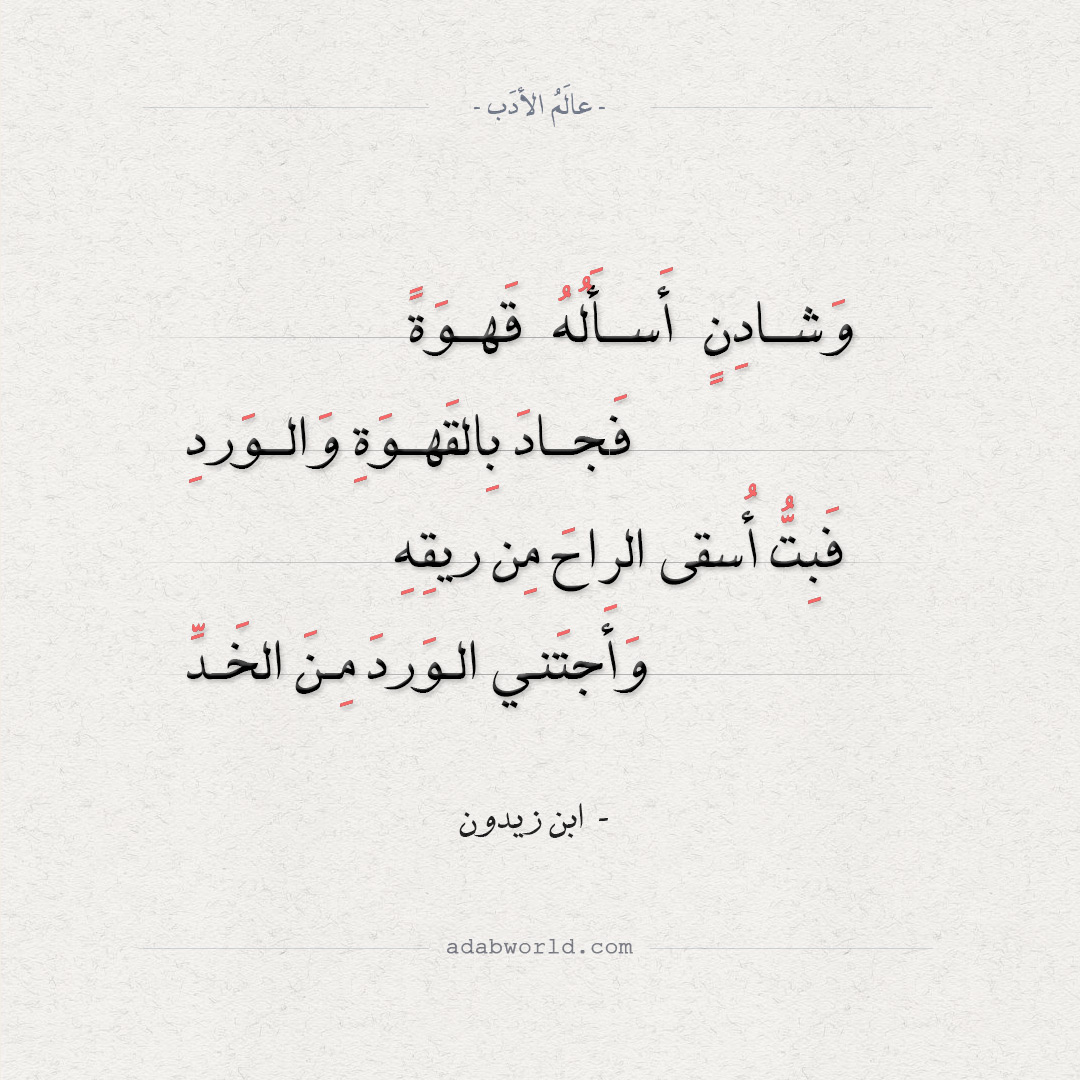 - عالَمُ الأدَب -
وَشـــادِنٍ أَســـأَلُهُ قَهـــوَةً
فَجـــادَ بِالقَهـــوَةِ وَالـــوَردِ
فَبِتُّ أُسقى الراحَ مِن ريقِهِ
وَأَجتَني الـوَردَ مِـنَ الخَـدِّ
- ابن زيدون
adabworld.com